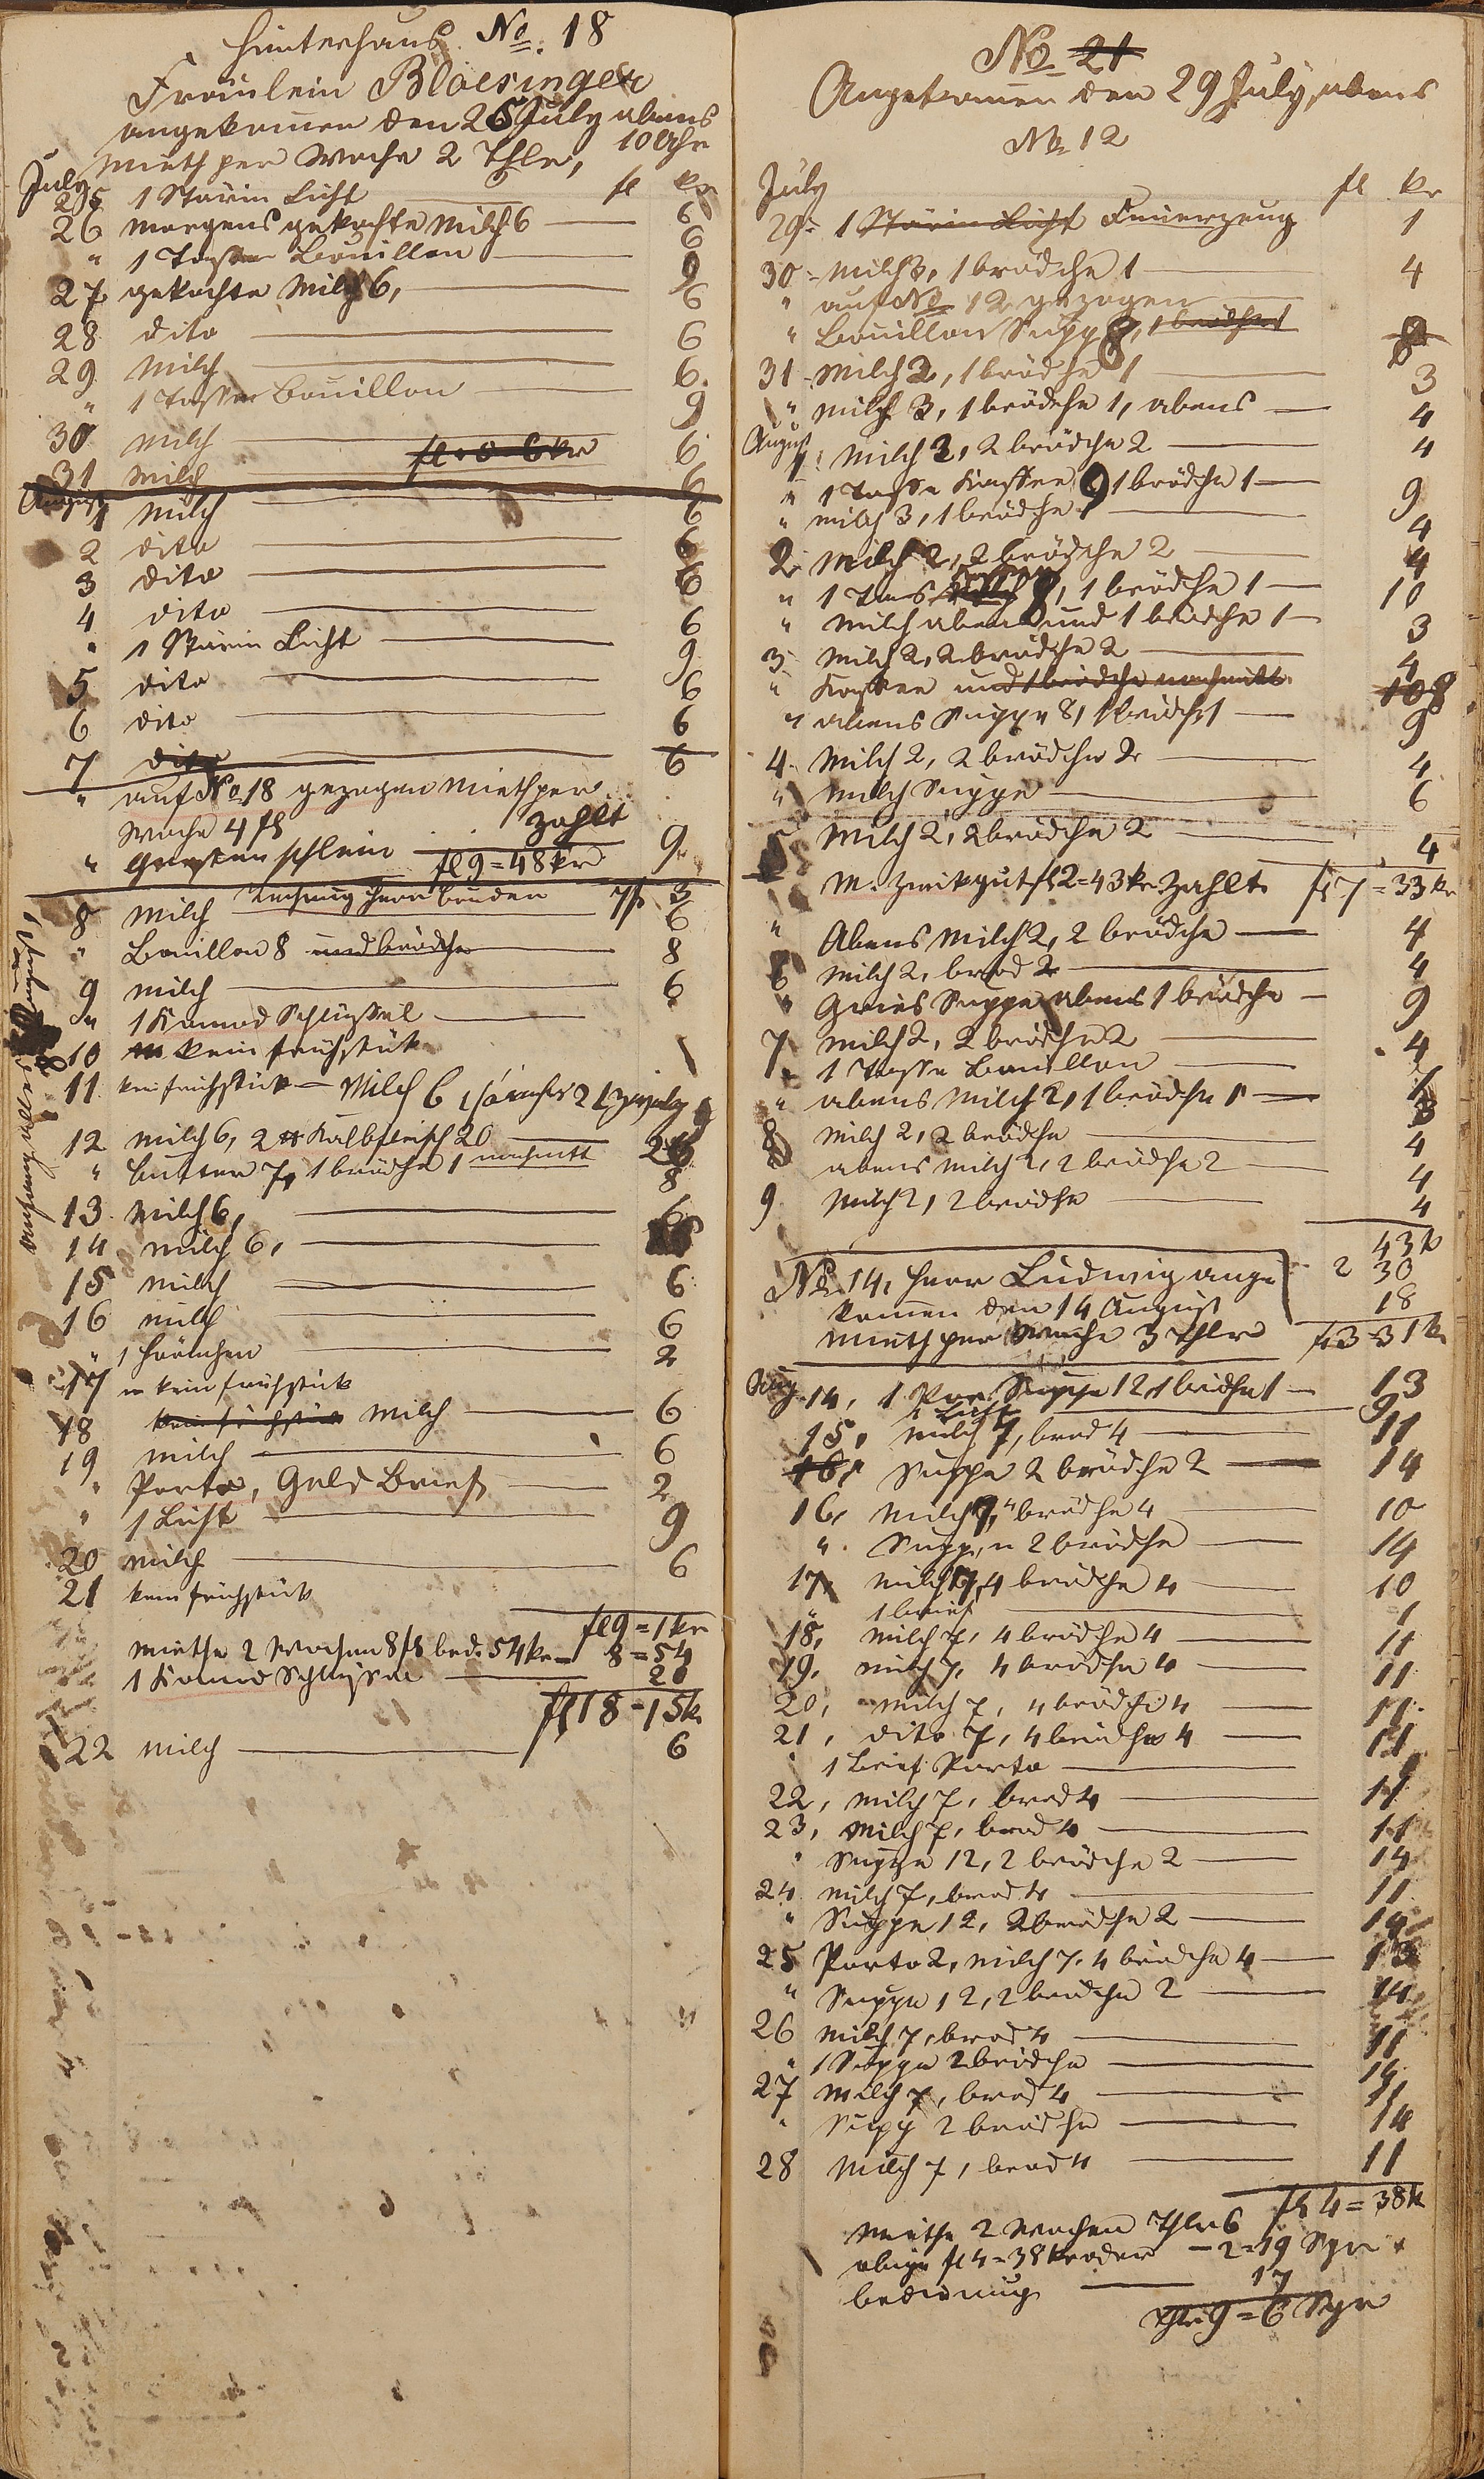 Hinterhaus No. 18
Fräulein Bloesinger
angekomen den 25 July abens
10 Uhr
Mieth per Woche 2 Thlr,
July fl kr
25 1 Stärin Licht
26 morgens gekochte Milch 6 6
" 1 Tasse Bouillon 9
27 gekochte Milch 6, 6
28 dito 6
29 Milch 6
" 1 Tasse Bouillon 9
30 Milch 6
31 Milch 6
August
1 Milch 6
2 dito 6
3 dito 6
4 dito 6
" 1 Stärin Licht 9
5 dito 6
6 dito 6
7 dito 6
" auf No 18 gezogen Mieth per
Woche 4 fl zahlt
" Gerstenschleim fl 9 = 48 kr 9
8 Milch 6
" Bouillon 8 und brödche 8
9 Milch 6
" 1 Komod Schlüssel
10 kein frühstück
11 kein frühstück Milch 6
12 Milch 6, 2 ℔ Kalbfleisch 20 26
" butter 7, 1 brödche 1 8
13 Milch 6, 6
14 Milch 6,
15 Milch 6
16 Milch 6
" 1 Hörnchen 2
17 kein frühstück
18 kein frühstück Milch 6
19 Milch 6
" Porto, Geld Brief 2
" 1 Licht 9
20 Milch 6
21 kein frühstück
fl 9 = 1 kr
Miethe 2 Wochen 8 fl bed. 54 kr 8 = 54
1 Komod Schlüssel 20
fl 18 - 15 k
22 Milch 6
No 21
Angekomen den 29 July, abens
No 12
July fl kr
29. 1 Stärin Licht Feuerzeug 1
30 Milch 3, 1 brödche 1 4
" auf No 12 gezogen
" Bouillon Supp 8, 1 brödche 1 8
31 Milch 2, 1 brödche 1 3
" Milch 3, 1 brödche 1, abens 4
August
1. Milch 2, 2 brödche 2 4
" 1 Tasse Kaffee 9 1 brödche 1 9
" Milch 3, 1 brödche 4
2. Milch 2, 2 brödche 2 4
" 1 Tas 9, 1 brödche 1 10
" Milch abens und 1 brödche 1 3
3 Milch 2, 2 brödche 2 4
" Kaffee und 1 brödche nachmitt. 10 8
" abens Suppe 8, 1 brödche 1 9
4. Milch 2, 2 brödche 2 4
" Milch Suppe 6
5 Milch 2, 2 brödche 2 4
M. Zwikgut fl 2 = 43 kr Zahlt fl 7 = 33 kr
" Abens Milch 2, 2 brödche 4
6 Milch 2, brod 2 4
" Gries Suppe abens 1 brödche 9
7 Milch 2, 2 brödche 2 4
" 1 Tasse Bouillon
" abens Milch 2, 1 brödche 1 3
8 Milch 2, 2 brödche 4
" abens Milch 2, 2 brödche 2 4
9. Milch 2, 2 brödche 4
43 k
2 30
18
fl 3 - 31 kr
No. 14, Herr Ludwig ange
komen den 14 August
Mieth per Woche 3 Thlr
Aug. 14, 1 Por Suppe 12, 1 brödche 1 13
1 Licht 9
15, Milch 7, brod 4 11
Suppe 2 brödche 2 14
16, Milch 7, 4 brödche 4 10
" Suppe, u 2 brödche 14
17 Milch 7, 4 brödche 4 10
" 1 brief 1
18, Milch 7, 4 brödche 4 11
19, Milch 7, 4 brödche 4 11
20, Milch 7, 4 brödche 4 11
21, dito 7, 4 brödche 4 11
" 1 Brief Porto
22, Milch 7, brod 4 11
23, Milch 7, brod 4 11
" Suppe 12, 2 brödche 2 14
24 Milch 7, brod 4 11
" Suppe 12, 2 brödche 2 14
25 Porto 2, Milch 7, 4 brödche 4 13
" Suppe 12, 2 brödche 2 14
26 Milch 7, brod 4 11
" 1 Suppe 2 brödche 14
27 Milch 7, brod 4 11
" Supp 2 brödche 14
28 Milch 7, brod 4 11
fl 4 = 38 k
Miethe 2 Wochen Thlr 6
obige fl 4 = 38 kr oder - 2 = 19 Sgr
bedienung 17
Thlr 9 = 6 Sgr